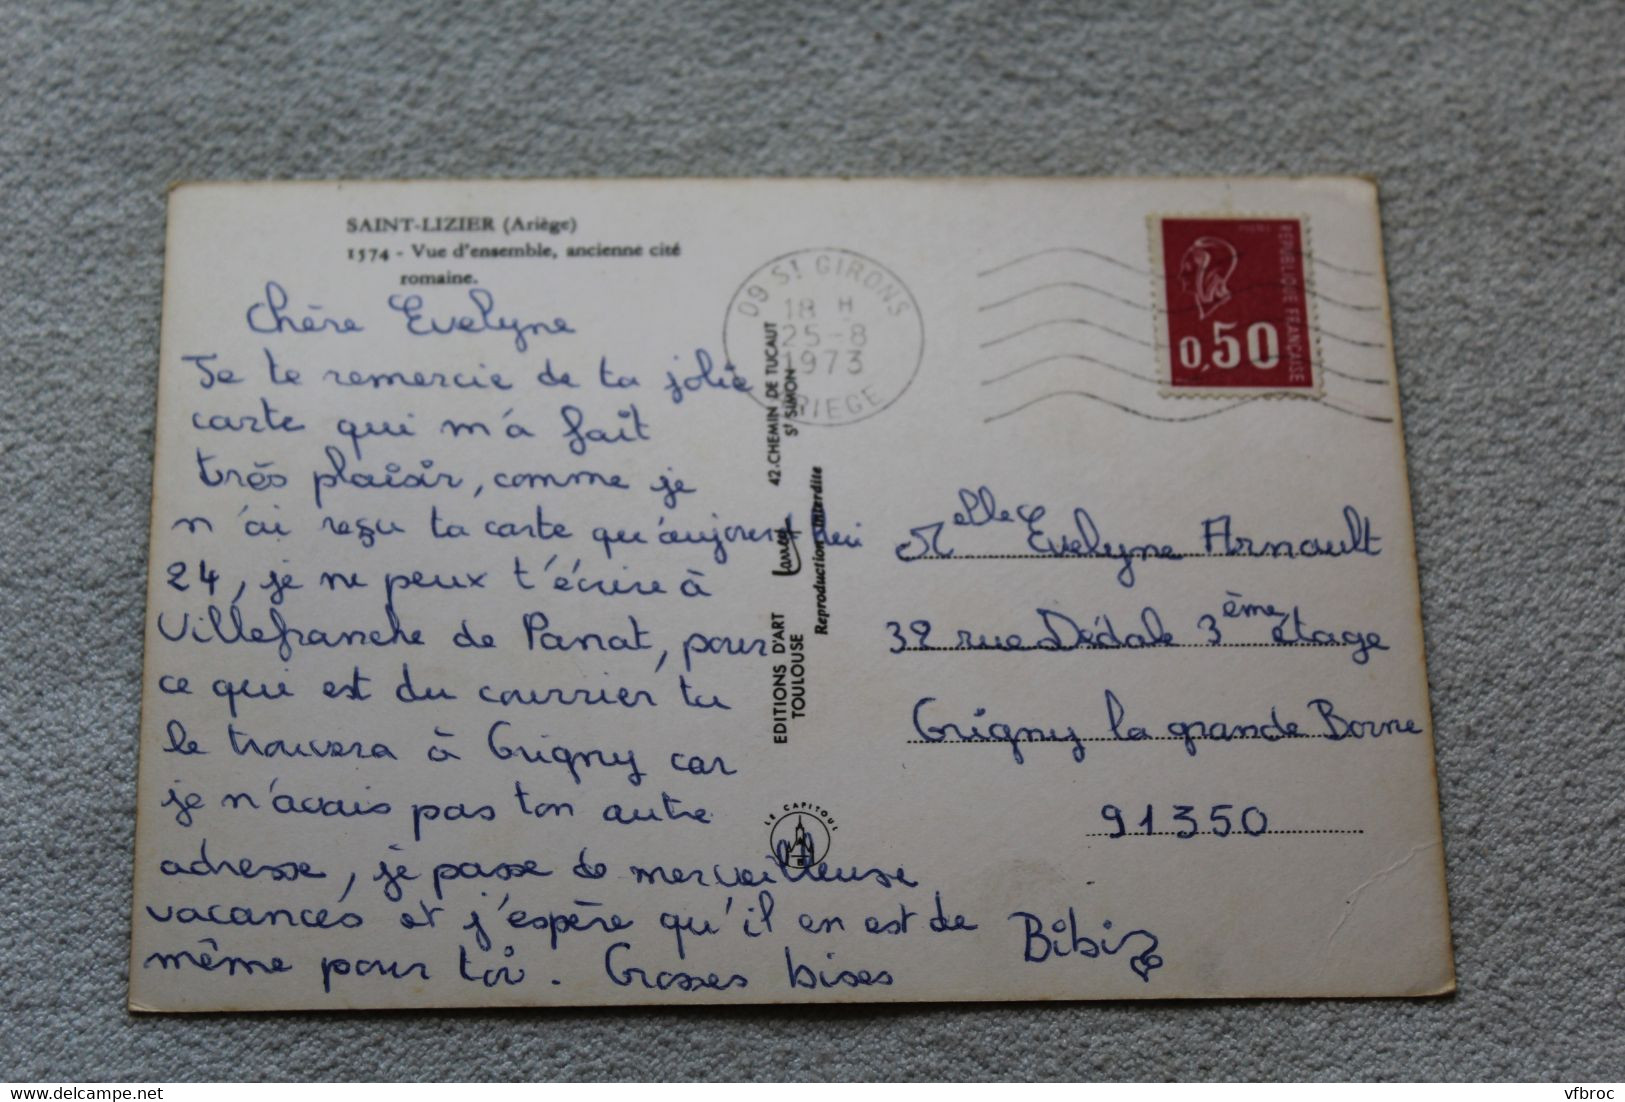 SAINT-LIZIER (Ariège)
1574 - Vue d'ensemble, ancienne cité
romaine.
Chère Evelyne
Je te remercie de ta jolie
carte qui m'a fait
très plaisir, comme je
n'ai reçu ta carte qu'aujourd'hui
24, je ne peux t'écrire à
Villefranche de Panat, pour
ce qui est du courrier tu
le trouvera à Grigny car
je n'avais pas ton autre
adresse, je passe de merveilleuse
vacances et j'espère qu'il en est de
même pour toi. Grosses bises
Bibi
09 St GIRONS
18 H
25-8
1973
ARIEGE
EDITIONS D'ART 42.CHEMIN DE TUCAUT
TOULOUSE St SIMON
Larrey
Reproduction interdite
LE CAPITOUL
REPUBLIQUE FRANÇAISE
0,50
Melle Evelyne Arnault
32 rue Dédale 3ème étage
Grigny la grande Borne
91350
vfbroc
delcampe.net